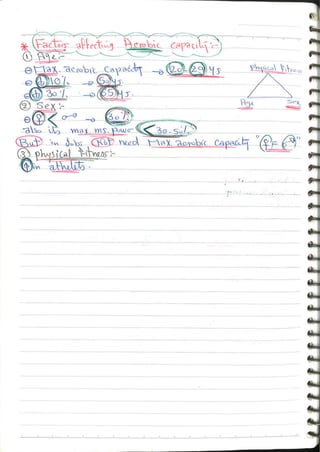 * Factors affecting Aerobic capacity:-
① Age:-
⊖ Max. aerobic capacity → 20-29 ys
⊖ ↓ 10% → 50 ys.
⊖ ↓ 30% → 65 ys.
Physical Fitness
Age Sex
② Sex:-
⊖ ♀ < ♂ → 30%
also its max. ms. power < 30-50%
But in Jobs Not need Max. aerobic capacity "♀ = ♂"
③ physical fitness:-
↑ in athelets.